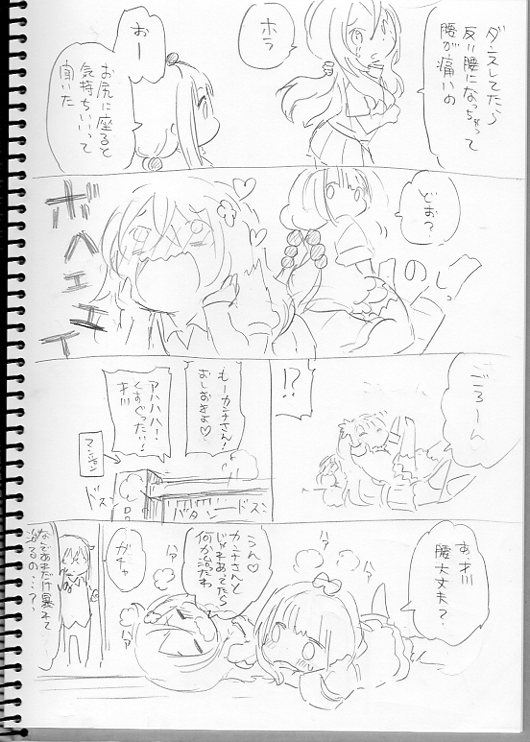 ダンスしてたら
反り腰になっちゃって
腰が痛いの
ホラ
おー
お尻に座ると
気持ちいいって
聞いた
どお?
のしっ
ボヘェェイ
ごろーん
!?
もーカンナさん!
おしおきよ♡
アハハハ!
くすぐったい!
才川
マンション
ドスン
バタン
ドスン
あ、才川
腰大丈夫?
ハァ
ハァ
うん♡
カンナさんと
じゃれあってたら
何か治ったわ
ハァ
ハァ
ガチャ
なであれだけ暴れて
治るの…?